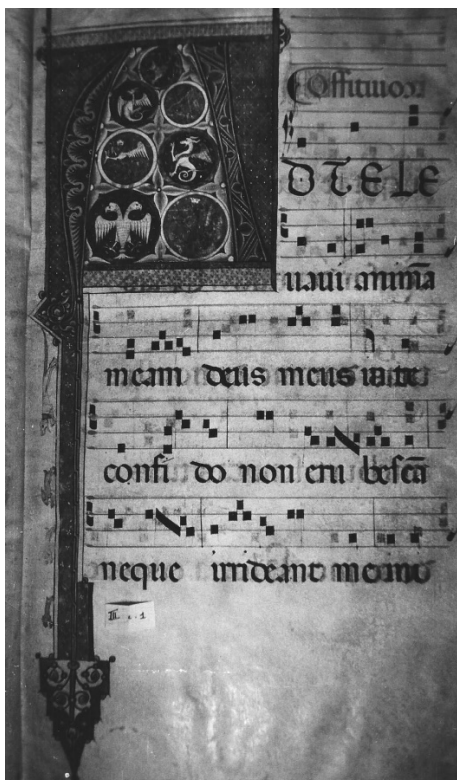 AD TE LE
uaui animã
meam deus meus in te
confi do non eru bescã
neque irrideant me
III . . 1